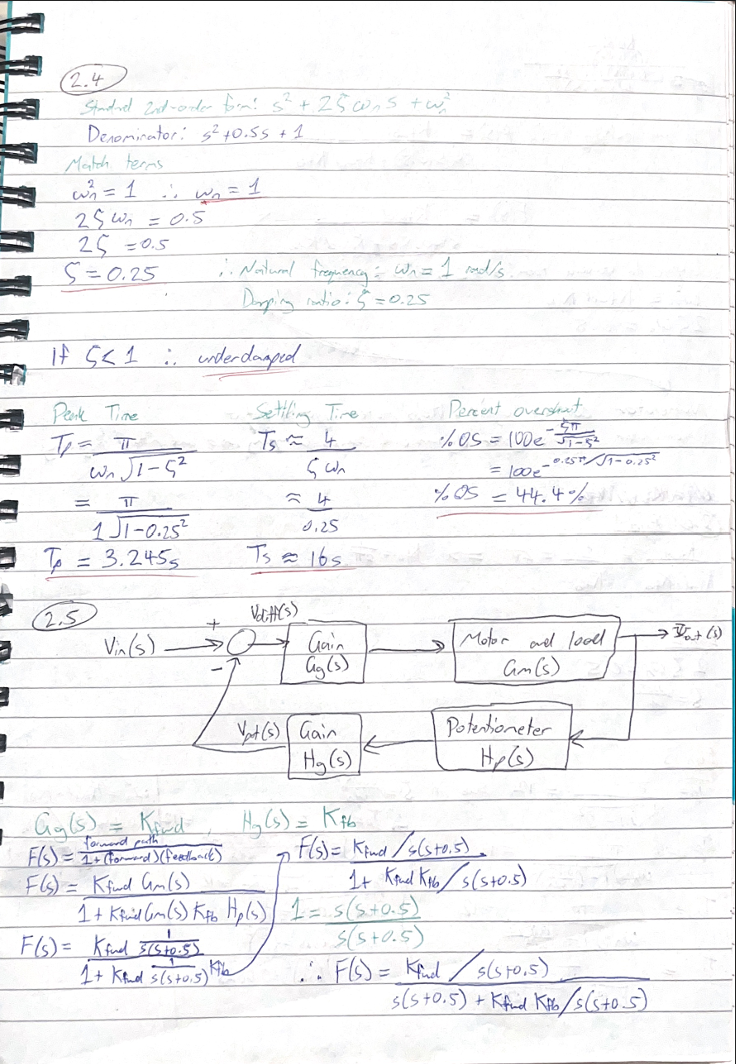 2.4
Standard 2nd-order form: s² + 2ζωns + ωn²
Denominator: s² + 0.5s + 1
Match terms
ωn² = 1 ∴ ωn = 1
2ζωn = 0.5
2ζ = 0.5
ζ = 0.25 ∴ Natural frequency: ωn = 1 rad/s
Damping ratio: ζ = 0.25
If ζ < 1 ∴ underdamped
Peak Time Settling Time Percent overshoot
Tp = π / ωn√1-ζ² Ts ≈ 4 / ζωn %OS = 100e^-ζπ/√1-ζ²
= π / 1√1-0.25² ≈ 4 / 0.25 = 100e^-0.25π/√1-0.25²
Tp = 3.245s Ts ≈ 16s %OS = 44.4%
2.5
Vin(s) + - Vdiff(s) Gain Gg(s) Motor and load Gm(s) Ψout(s)
Vpt(s) Gain Hg(s) Potentiometer Hp(s)
Gg(s) = Kfwd, Hg(s) = Kfb
F(s) = forward path / 1+(forward)(feedback)
F(s) = Kfwd Gm(s) / 1 + Kfwd Gm(s) Kfb Hp(s)
F(s) = Kfwd 1/s(s+0.5) / 1 + Kfwd 1/s(s+0.5) Kfb
F(s) = Kfwd / s(s+0.5) / 1 + Kfwd Kfb / s(s+0.5)
1 = s(s+0.5) / s(s+0.5)
∴ F(s) = Kfwd / s(s+0.5) / s(s+0.5) + Kfwd Kfb / s(s+0.5)